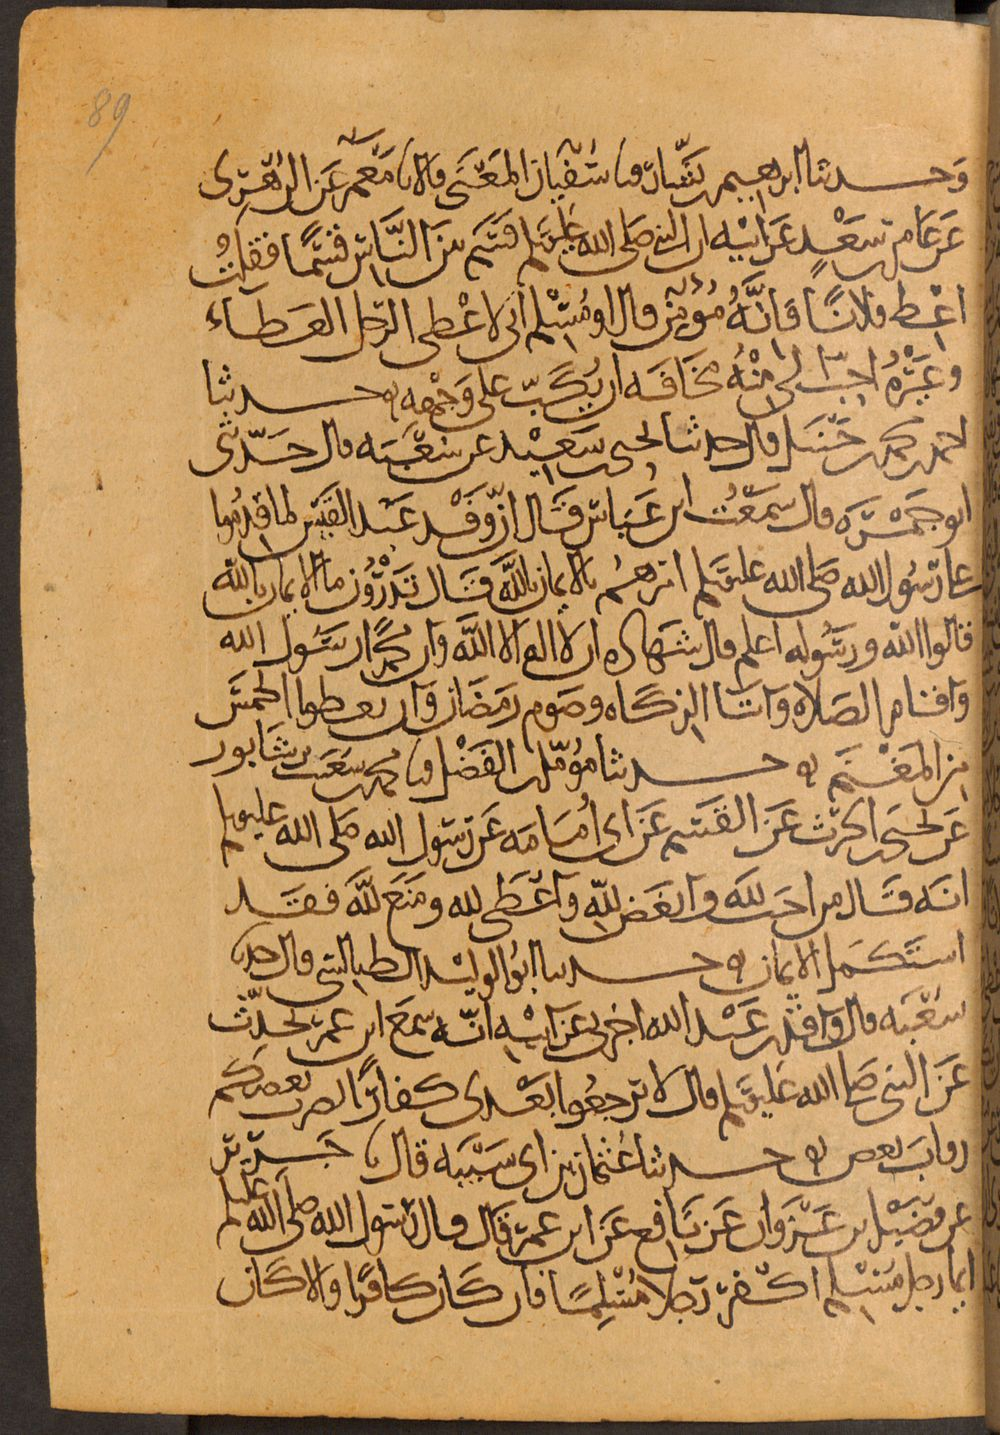 89
وحدثنا ابرهيم بن بشار نا سفيان المعنى قالا نا معمر عن الزهرى
عن عامر بن سعد عن ابيه ان النبى صلى الله عليه وسلم قسم بين الناس قسما فقلت
اعط فلانا فانه مؤمن قال او مسلم انى لاعطى الرجل العطاء
وغيره احب الى منه مخافه ان يكب على وجهه حدثنا
احمد بن محمد بن حنبل قال حدثنا يحيى بن سعيد عن شعبه قال حدثنى
ابو جمره قال سمعت ابن عباس قال ان وفد عبد القيس لما قدموا
على رسول الله صلى الله عليه وسلم امرهم بالايمان بالله قال تدرون ما الايمان بالله
قالوا الله ورسوله اعلم قال شهاده ان لا اله الا الله وان محمدا رسول الله
واقام الصلاه وايتا الزكاه وصوم رمضان وان يعطوا الخمس
من المغنم حدثنا مؤمل بن الفضل نا محمد بن شعيب بن شابور
عن يحيى بن الحرث عن القسم عن ابى أمامه عن رسول الله صلى الله عليه وسلم
انه قال من احب لله وابغض لله واعطى لله ومنع لله فقد
استكمل الايمان حدثنا ابو الوليد الطيالسى قال حدثنا
شعبه قال واقد بن عبد الله اخبرنى عن ابيه انه سمع ابن عمر يحدث
عن النبى صلى الله عليه وسلم قال لا ترجعوا بعدى كفارا يضرب بعضكم
رقاب بعض حدثنا عثمان بن ابى شيبه قال نا جرير
عن فضيل بن غزوان عن نافع عن ابن عمر قال قال رسول الله صلى الله عليه وسلم
ايما رجل مسلم اكفر رجلا مسلما فان كان كافرا والا كان